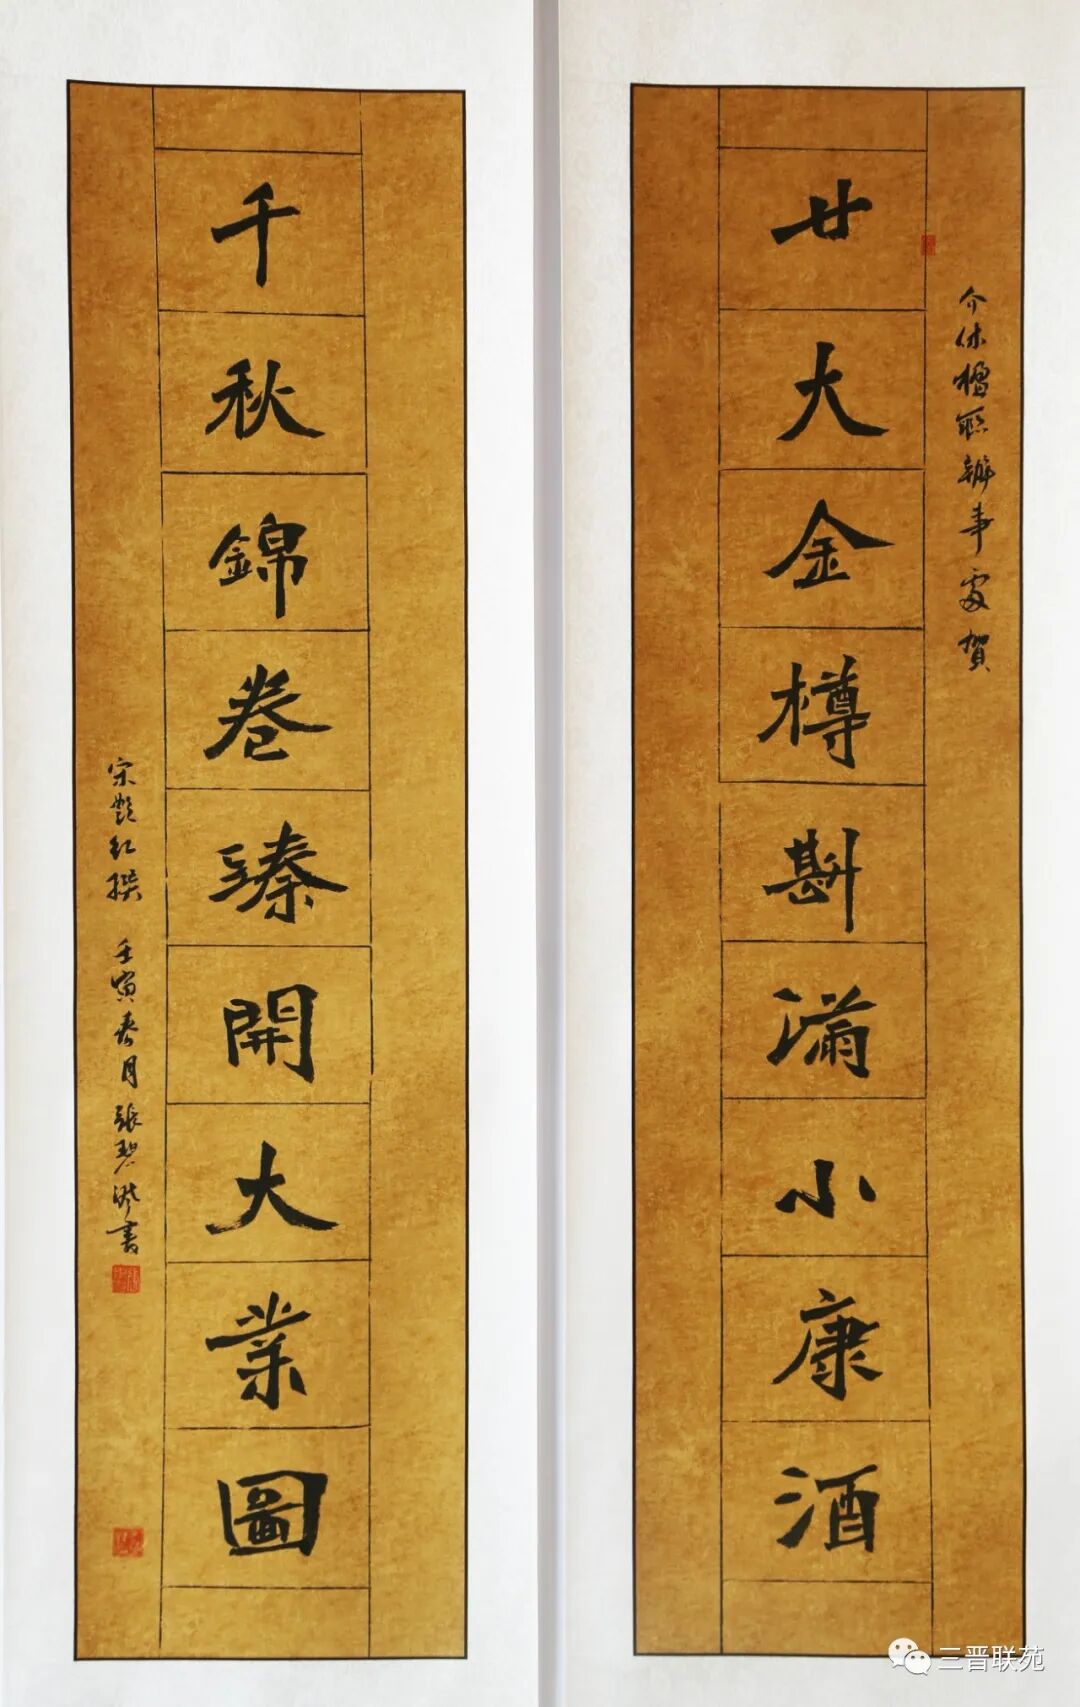 介休楹聯辦事處賀
廿大金樽斟滿小康酒
千秋錦卷臻開大業圖
宋艷紅撰 壬寅春月張碧洪書
三晋联苑